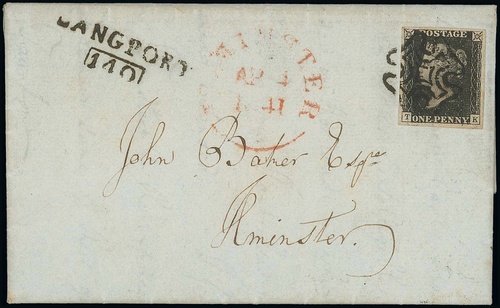 LANGPORT
140
MINSTER
AP 4
1841
POSTAGE
ONE PENNY
John Baker Esqre
Ilminster.